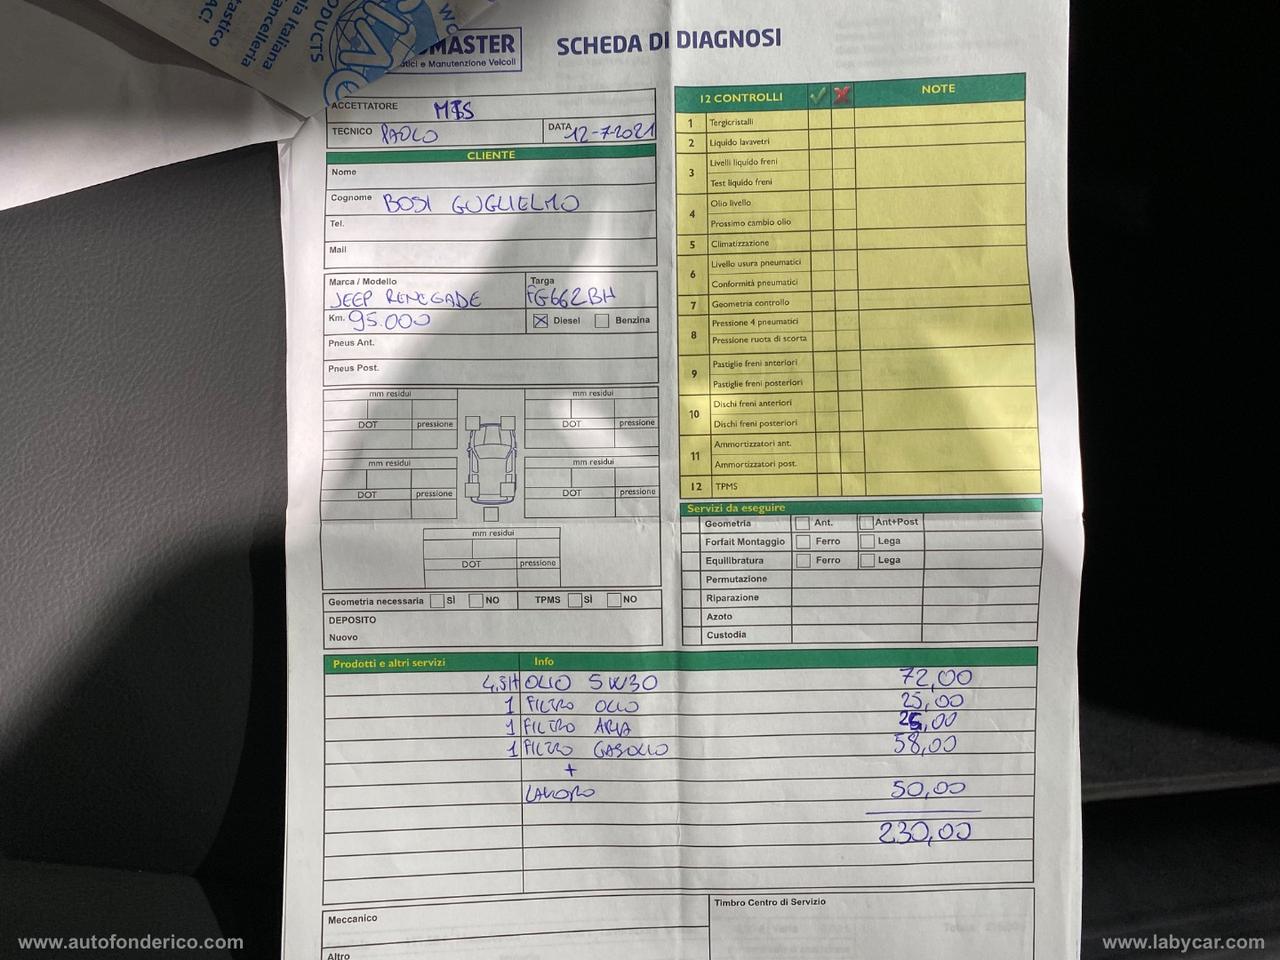 PRODUCTS
MASTER
tici e Manutenzione Veicoli
SCHEDA DI DIAGNOSI
ACCETTATORE
TECNICO PAOLO
DATA 12-7-2021
CLIENTE
Nome
Cognome BOSI GUGLIELMO
Tel.
Mail
Marca / Modello
JEEP RENEGADE
Targa
FG662BH
Km. 95.000
Diesel
Benzina
Pneus Ant.
Pneus Post.
mm residui
DOT
pressione
mm residui
DOT
pressione
mm residui
DOT
pressione
mm residui
DOT
pressione
mm residui
DOT
pressione
Geometria necessaria SÌ NO TPMS SÌ NO
DEPOSITO
Nuovo
12 CONTROLLI
NOTE
1 Tergicristalli
2 Liquido lavavetri
3 Livelli liquido freni
Test liquido freni
4 Olio livello
Prossimo cambio olio
5 Climatizzazione
6 Livello usura pneumatici
Conformità pneumatici
7 Geometria controllo
8 Pressione 4 pneumatici
Pressione ruota di scorta
9 Pastiglie freni anteriori
Pastiglie freni posteriori
10 Dischi freni anteriori
Dischi freni posteriori
11 Ammortizzatori ant.
Ammortizzatori post.
12 TPMS
Servizi da eseguire
Geometria Ant. Ant+Post
Forfait Montaggio Ferro Lega
Equilibratura Ferro Lega
Permutazione
Riparazione
Azoto
Custodia
Prodotti e altri servizi Info
OLIO 5W30 72,00
1 FILTRO OLIO 25,00
1 FILTRO ARIA 25,00
1 FILTRO GASOLIO 58,00
+
LAVORO 50,00
230,00
Meccanico
Altro
Timbro Centro di Servizio
www.autofonderico.com
www.labycar.com